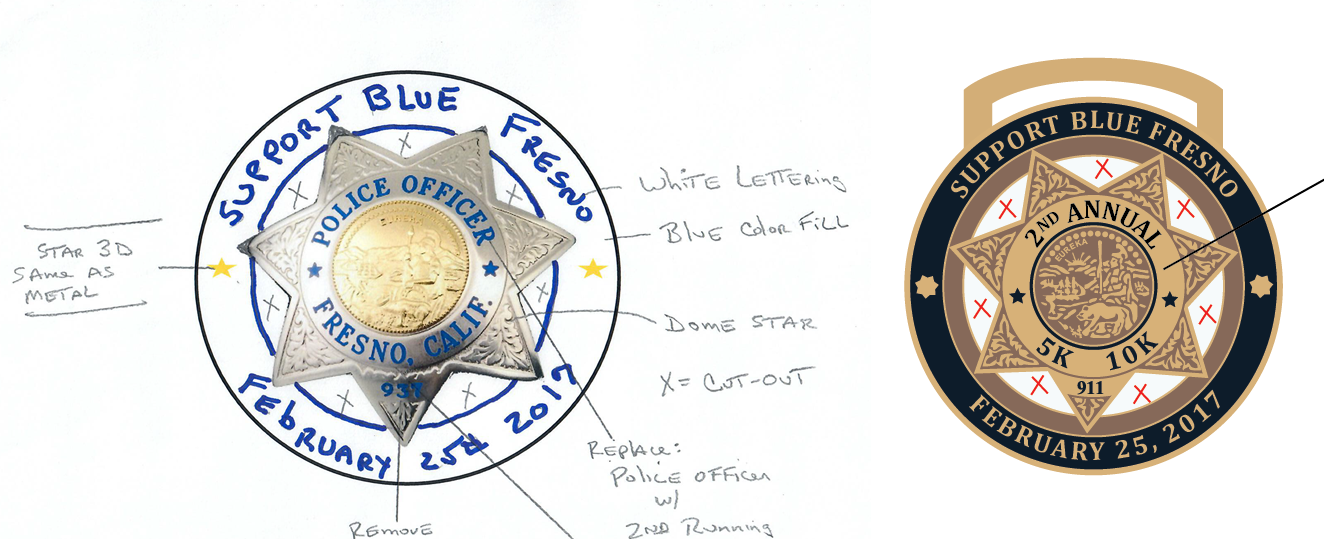 SUPPORT BLUE FRESNO
POLICE OFFICER
EUREKA
FRESNO, CALIF.
937
FEBRUARY 25th 2017
STAR 3D
SAME AS
METAL
WHITE LETTERING
BLUE COLOR FILL
DOME STAR
X = CUT-OUT
REPLACE:
POLICE OFFICER
W/
2ND RUNNING
REMOVE
SUPPORT BLUE FRESNO
2ND ANNUAL
EUREKA
5K 10K
911
FEBRUARY 25, 2017